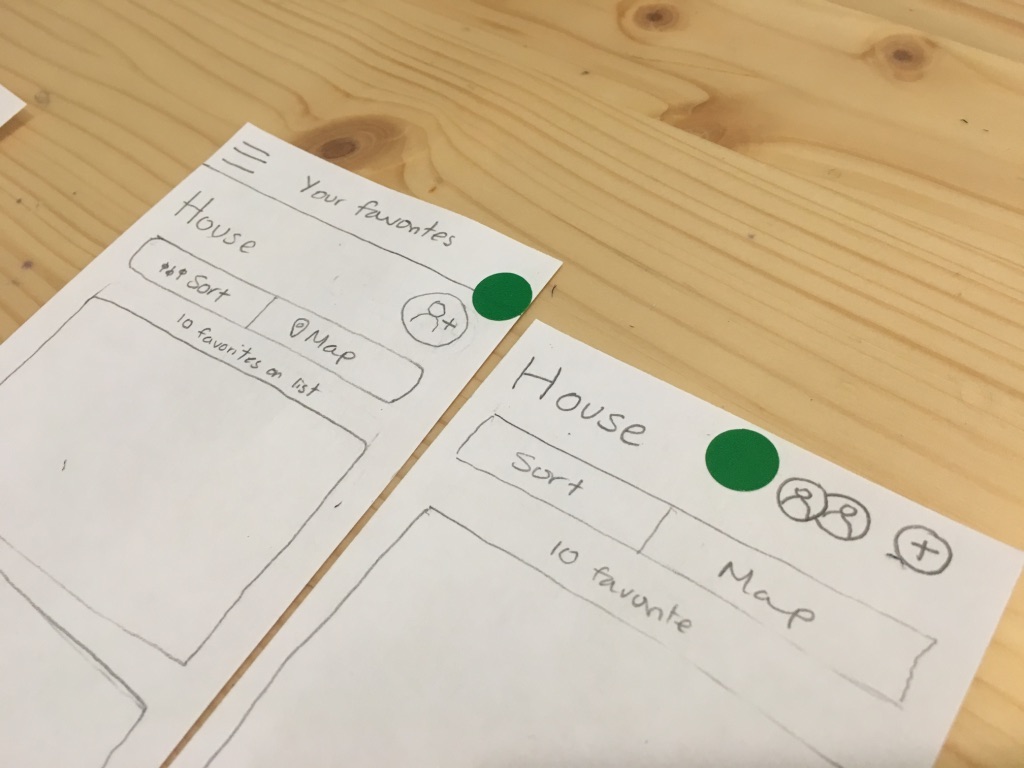 Your favorites
House
Sort
Map
10 favorites on list
House
Sort
Map
10 favorite